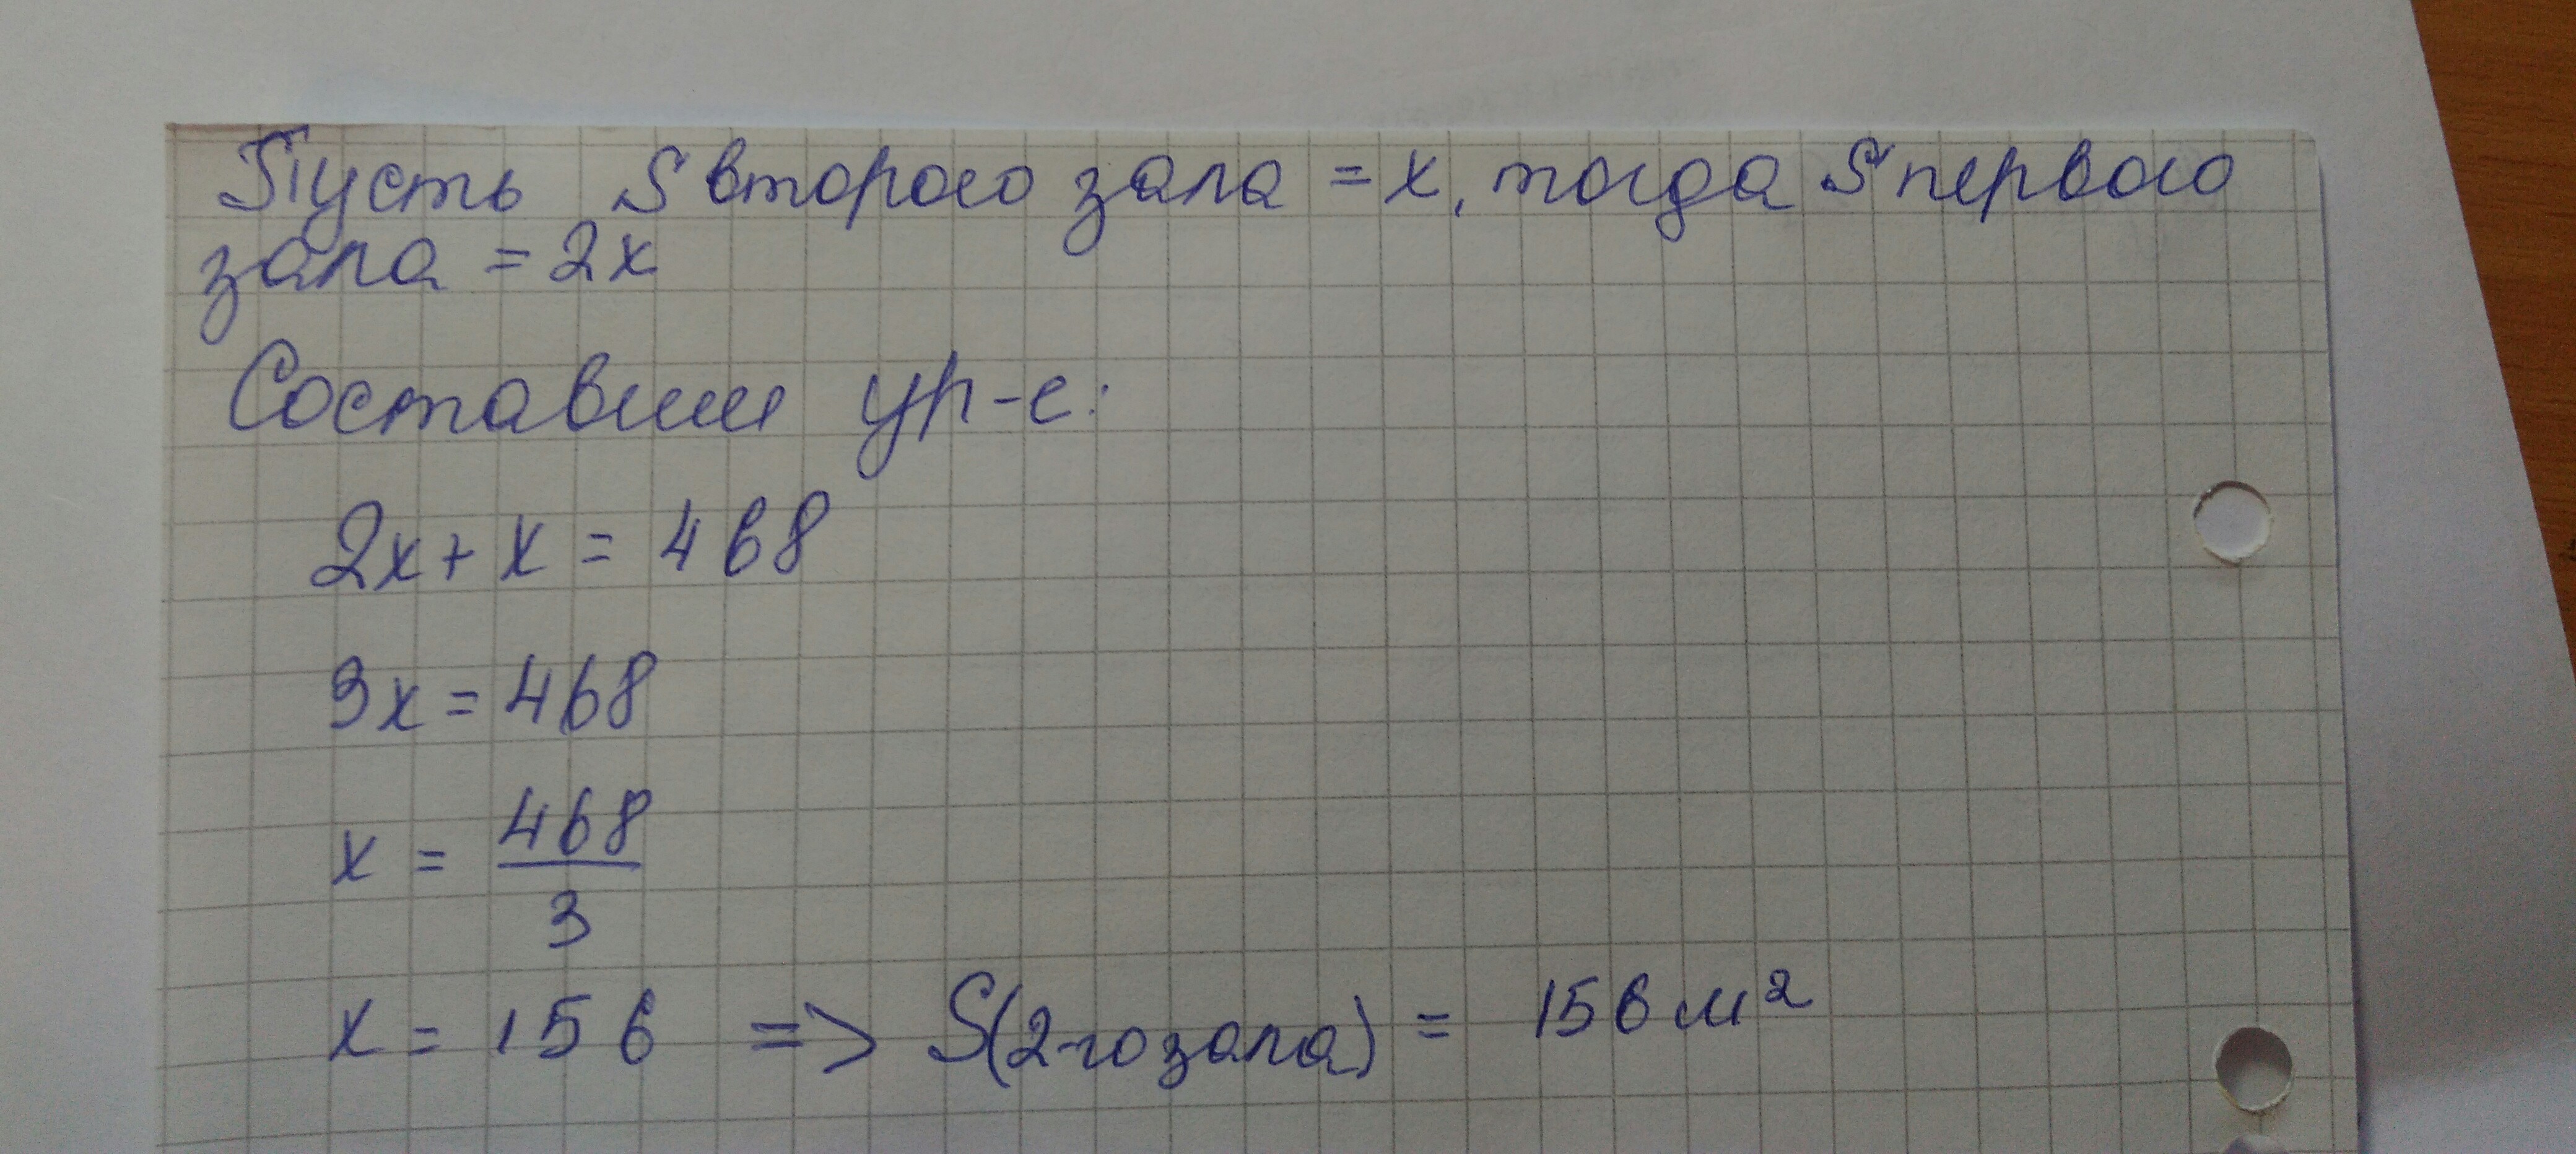 Пусть S второго зала = x, тогда S первого
зала = 2x
Составим ур-е:
2x + x = 468
3x = 468
x = 468/3
x = 156 => S(2-го зала) = 156 м²